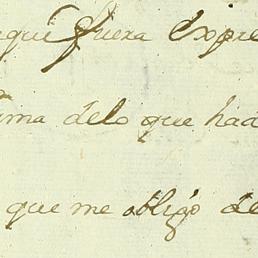 aqui fuera expre
ma delo que had
que me obligó de